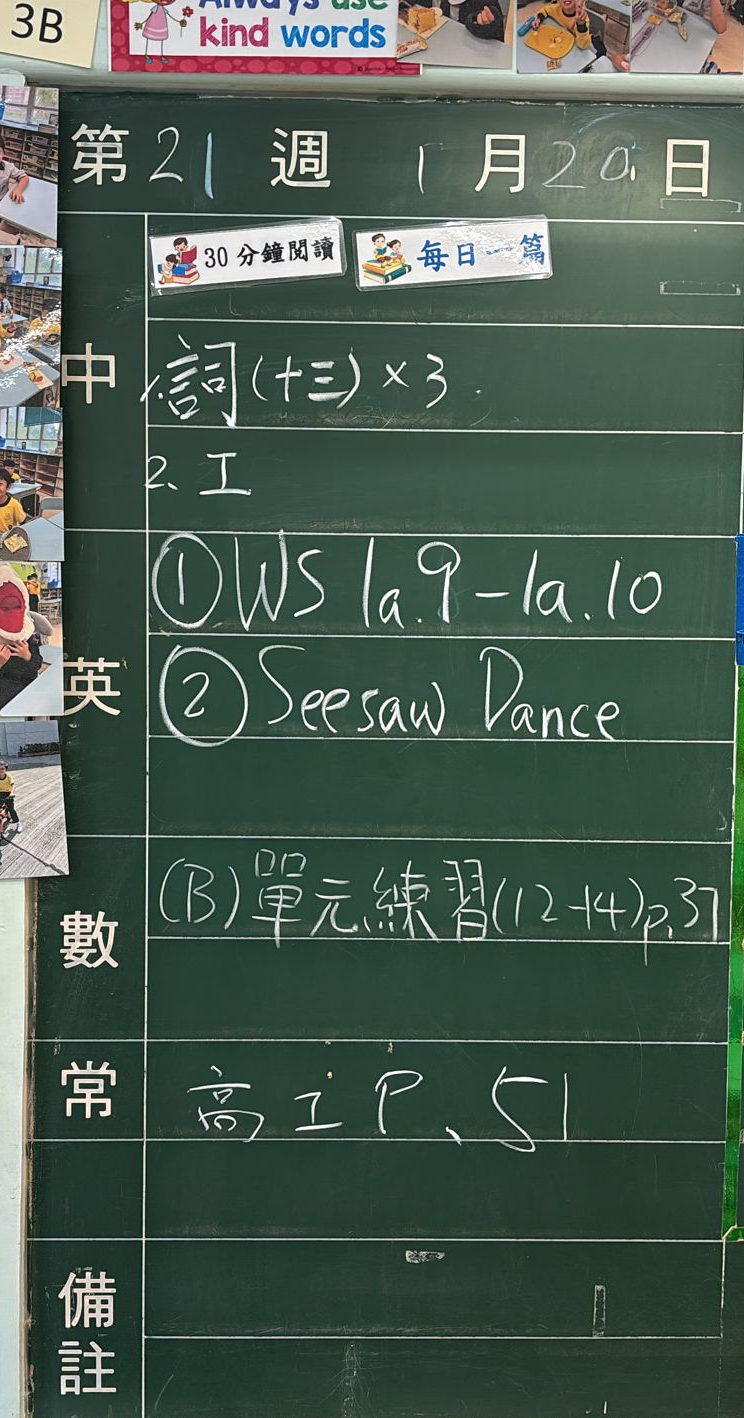 3B
Always use
kind words
第21週 1月20日
30分鐘閱讀 每日一篇
中
1.詞(十三)×3.
2、工
英
①WS 1a.9-1a.10
②Seesaw Dance
數
(B)單元練習(12-14)p.37
常
高工P、51
備註